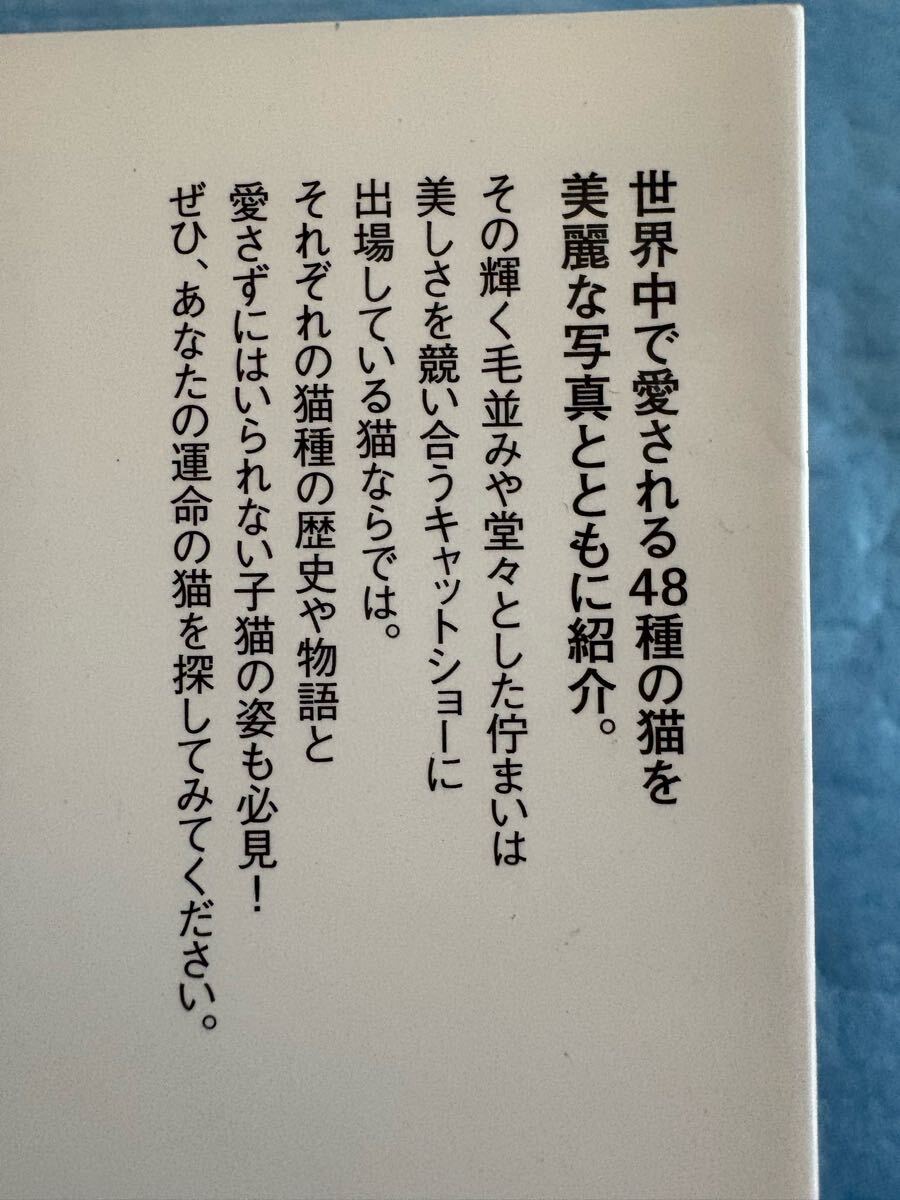 世界中で愛される48種の猫を
美麗な写真とともに紹介。
その輝く毛並みや堂々とした佇まいは
美しさを競い合うキャットショーに
出場している猫ならでは。
それぞれの猫種の歴史や物語と
愛さずにはいられない子猫の姿も必見！
ぜひ、あなたの運命の猫を探してみてください。